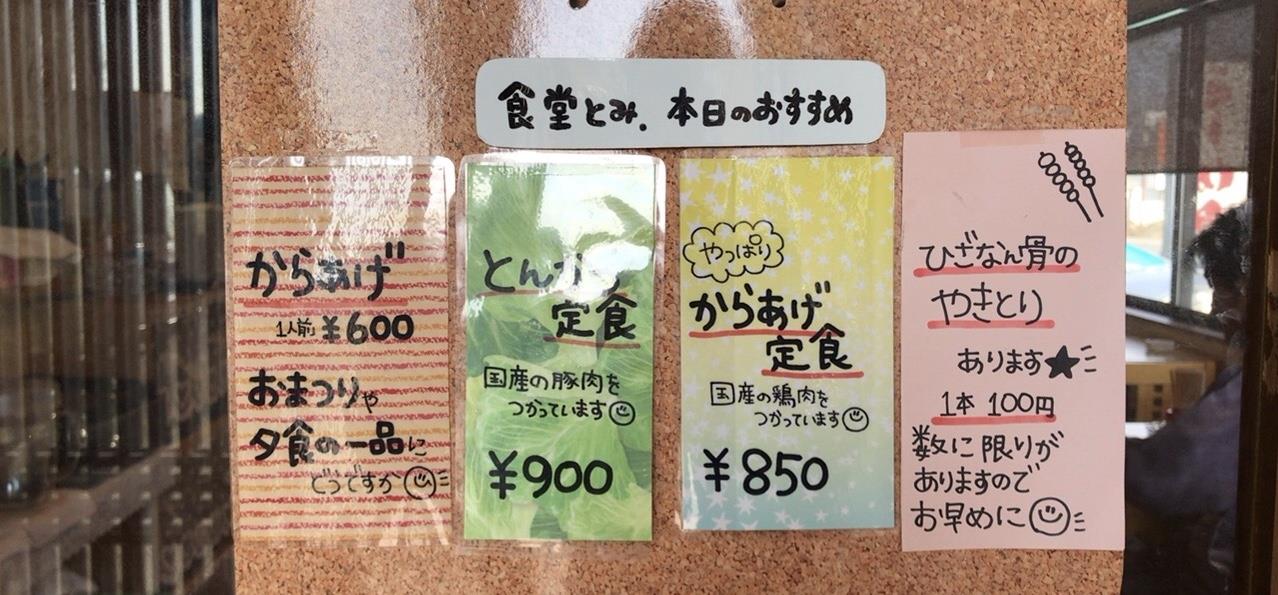 食堂とみ. 本日のおすすめ
からあげ
1人前 ¥600
おまつりや
夕食の一品に
どうですか
とんかつ
定食
国産の豚肉を
つかっています
¥900
やっぱり
からあげ
定食
国産の鶏肉を
つかっています
¥850
ひざなん骨の
やきとり
あります★
1本 100円
数に限りが
ありますので
お早めに